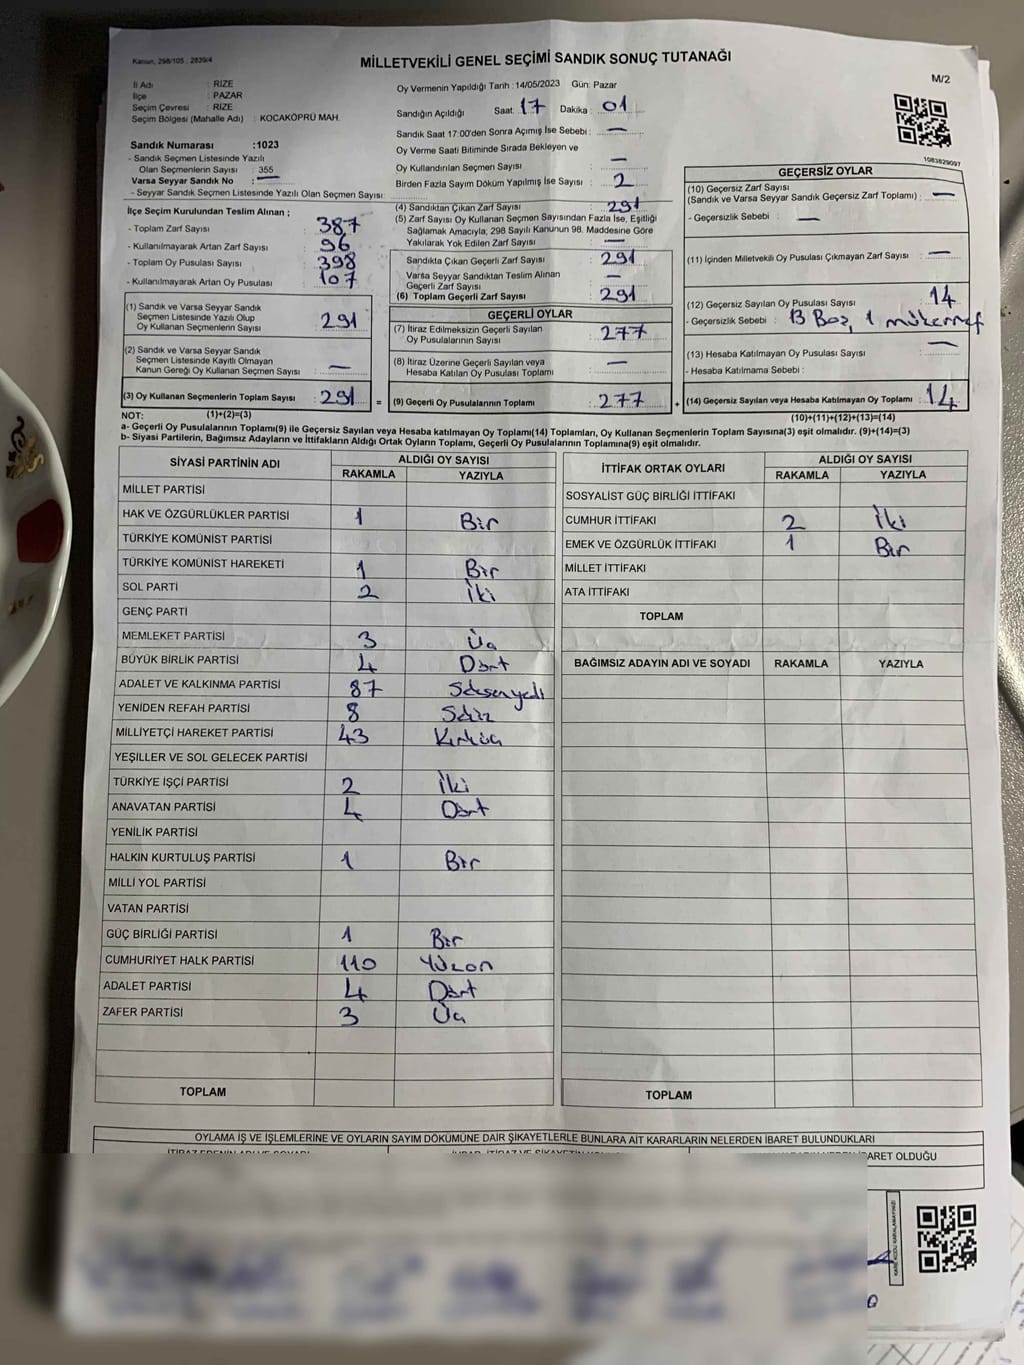 Kanun, 298/105 : 2839/4
MİLLETVEKİLİ GENEL SEÇİMİ SANDIK SONUÇ TUTANAĞI
M/2
İl Adı : RİZE
İlçe : PAZAR
Seçim Çevresi : RİZE
Seçim Bölgesi (Mahalle Adı) : KOCAKÖPRÜ MAH.
Sandık Numarası :1023
- Sandık Seçmen Listesinde Yazılı
Olan Seçmenlerin Sayısı : 355
Varsa Seyyar Sandık No : —
- Seyyar Sandık Seçmen Listesinde Yazılı Olan Seçmen Sayısı:
Oy Vermenin Yapıldığı Tarih : 14/05/2023 Gün: Pazar
Sandığın Açıldığı Saat: 17 Dakika : 01
Sandık Saat 17:00'den Sonra Açımış İse Sebebi : —
Oy Verme Saati Bitiminde Sırada Bekleyen ve
Oy Kullandırılan Seçmen Sayısı : —
Birden Fazla Sayım Döküm Yapılmış İse Sayısı : 2
1083829097
İlçe Seçim Kurulundan Teslim Alınan ;
- Toplam Zarf Sayısı : 387
- Kullanılmayarak Artan Zarf Sayısı : 96
- Toplam Oy Pusulası Sayısı : 398
- Kullanılmayarak Artan Oy Pusulası : 107
(1) Sandık ve Varsa Seyyar Sandık
Seçmen Listesinde Yazılı Olup
Oy Kullanan Seçmenlerin Sayısı : 291
(2) Sandık ve Varsa Seyyar Sandık
Seçmen Listesinde Kayıtlı Olmayan
Kanun Gereği Oy Kullanan Seçmen Sayısı : —
(3) Oy Kullanan Seçmenlerin Toplam Sayısı : 291
(4) Sandıktan Çıkan Zarf Sayısı : 291
(5) Zarf Sayısı Oy Kullanan Seçmen Sayısından Fazla İse, Eşitliği
Sağlamak Amacıyla, 298 Sayılı Kanunun 98. Maddesine Göre
Yakılarak Yok Edilen Zarf Sayısı : —
Sandıkta Çıkan Geçerli Zarf Sayısı : 291
Varsa Seyyar Sandıktan Teslim Alınan
Geçerli Zarf Sayısı : —
(6) Toplam Geçerli Zarf Sayısı : 291
GEÇERLİ OYLAR
(7) İtiraz Edilmeksizin Geçerli Sayılan
Oy Pusulalarının Sayısı : 277
(8) İtiraz Üzerine Geçerli Sayılan veya
Hesaba Katılan Oy Pusulası Toplamı : —
= (9) Geçerli Oy Pusulalarının Toplamı : 277
GEÇERSİZ OYLAR
(10) Geçersiz Zarf Sayısı
(Sandık ve Varsa Seyyar Sandık Geçersiz Zarf Toplamı) : —
- Geçersizlik Sebebi : —
(11) İçinden Milletvekili Oy Pusulası Çıkmayan Zarf Sayısı : —
(12) Geçersiz Sayılan Oy Pusulası Sayısı : 14
- Geçersizlik Sebebi : 13 Boş, 1 mükerrer
(13) Hesaba Katılmayan Oy Pusulası Sayısı : —
- Hesaba Katılmama Sebebi :
+ (14) Geçersiz Sayılan veya Hesaba Katılmayan Oy Toplamı : 14
NOT: (1)+(2)=(3) (10)+(11)+(12)+(13)=(14)
a- Geçerli Oy Pusulalarının Toplamı(9) ile Geçersiz Sayılan veya Hesaba katılmayan Oy Toplamı(14) Toplamları, Oy Kullanan Seçmenlerin Toplam Sayısına(3) eşit olmalıdır. (9)+(14)=(3)
b- Siyasi Partilerin, Bağımsız Adayların ve İttifakların Aldığı Ortak Oyların Toplamı, Geçerli Oy Pusulalarının Toplamına(9) eşit olmalıdır.
SİYASİ PARTİNİN ADI ALDIĞI OY SAYISI
RAKAMLA YAZIYLA
MİLLET PARTİSİ
HAK VE ÖZGÜRLÜKLER PARTİSİ 1 Bir
TÜRKİYE KOMÜNİST PARTİSİ
TÜRKİYE KOMÜNİST HAREKETİ 1 Bir
SOL PARTİ 2 İki
GENÇ PARTİ
MEMLEKET PARTİSİ 3 Üç
BÜYÜK BİRLİK PARTİSİ 4 Dört
ADALET VE KALKINMA PARTİSİ 87 Seksenyedi
YENİDEN REFAH PARTİSİ 8 Sekiz
MİLLİYETÇİ HAREKET PARTİSİ 43 Kırküç
YEŞİLLER VE SOL GELECEK PARTİSİ
TÜRKİYE İŞÇİ PARTİSİ 2 İki
ANAVATAN PARTİSİ 4 Dört
YENİLİK PARTİSİ
HALKIN KURTULUŞ PARTİSİ 1 Bir
MİLLİ YOL PARTİSİ
VATAN PARTİSİ
GÜÇ BİRLİĞİ PARTİSİ 1 Bir
CUMHURİYET HALK PARTİSİ 110 Yüzon
ADALET PARTİSİ 4 Dört
ZAFER PARTİSİ 3 Üç
TOPLAM
İTTİFAK ORTAK OYLARI ALDIĞI OY SAYISI
RAKAMLA YAZIYLA
SOSYALİST GÜÇ BİRLİĞİ İTTİFAKI
CUMHUR İTTİFAKI 2 İki
EMEK VE ÖZGÜRLÜK İTTİFAKI 1 Bir
MİLLET İTTİFAKI
ATA İTTİFAKI
TOPLAM
BAĞIMSIZ ADAYIN ADI VE SOYADI RAKAMLA YAZIYLA
TOPLAM
OYLAMA İŞ VE İŞLEMLERİNE VE OYLARIN SAYIM DÖKÜMÜNE DAİR ŞİKAYETLERLE BUNLARA AİT KARARLARIN NELERDEN İBARET BULUNDUKLARI
BARET OLDUĞU